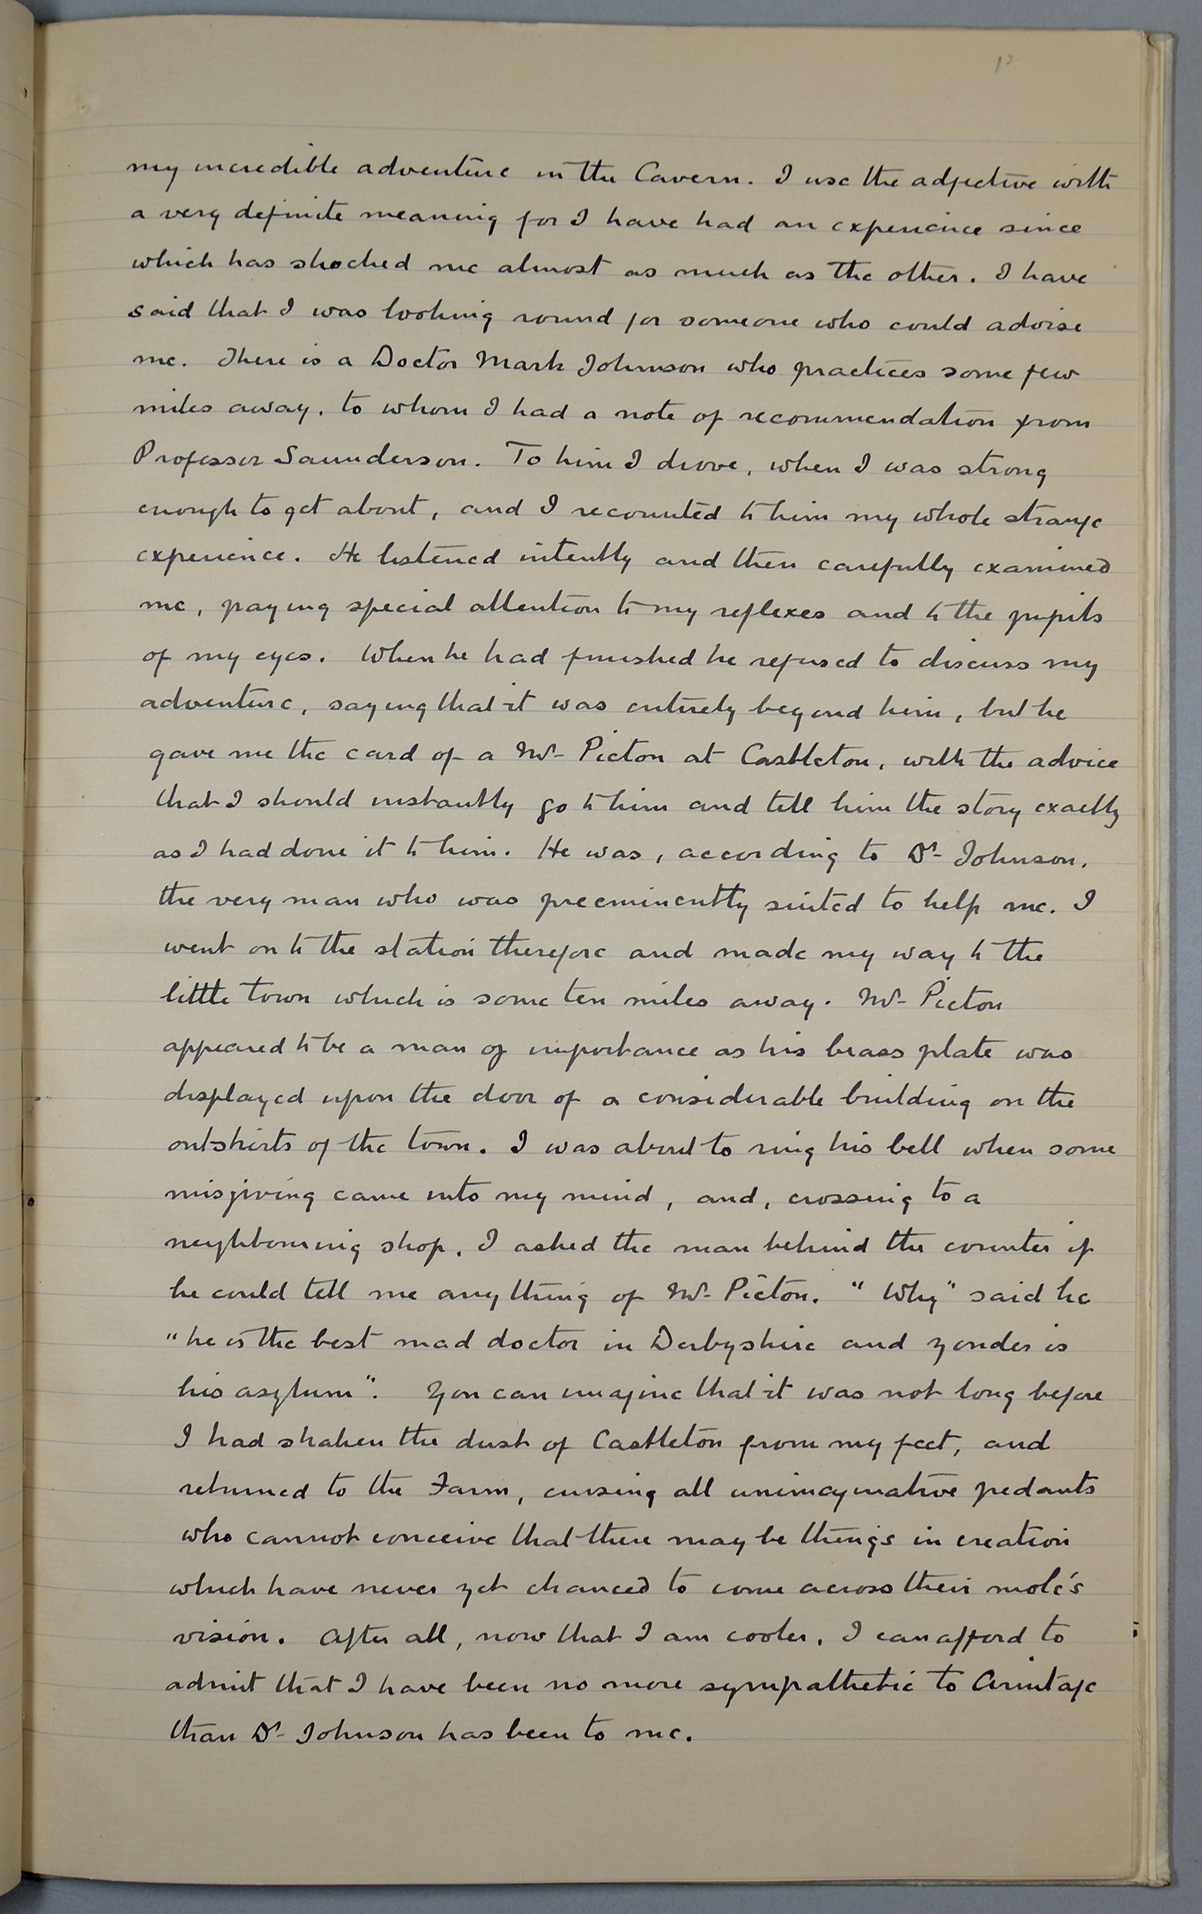 my incredible adventure in the Cavern. I use the adjective with
a very definite meaning for I have had an experience since
which has shocked me almost as much as the other. I have
said that I was looking round for someone who could advise
me. There is a Doctor Mark Johnson who practices some few
miles away, to whom I had a note of recommendation from
Professor Saunderson. To him I drove, when I was strong
enough to get about, and I recounted to him my whole strange
experience. He listened intently and then carefully examined
me, paying special attention to my reflexes and to the pupils
of my eyes. When he had finished he refused to discuss my
adventure, saying that it was entirely beyond him, but he
gave me the card of a Mr Picton at Castleton, with the advice
that I should instantly go to him and tell him the story exactly
as I had done it to him. He was, according to Dr Johnson,
the very man who was preeminently suited to help me. I
went on to the station therefore and made my way to the
little town which is some ten miles away. Mr Picton
appeared to be a man of importance as his brass plate was
displayed upon the door of a considerable building on the
outskirts of the town. I was about to ring his bell when some
misgiving came into my mind, and, crossing to a
neighbouring shop, I asked the man behind the counter if
he could tell me anything of Mr Picton. "Why" said he
"he is the best mad doctor in Derbyshire and yonder is
his asylum". You can imagine that it was not long before
I had shaken the dust of Castleton from my feet, and
returned to the Farm, cursing all unimaginative pedants
who cannot conceive that there may be things in creation
which have never yet chanced to come across their mole's
vision. After all, now that I am cooler, I can afford to
admit that I have been no more sympathetic to Armitage
than Dr Johnson has been to me.